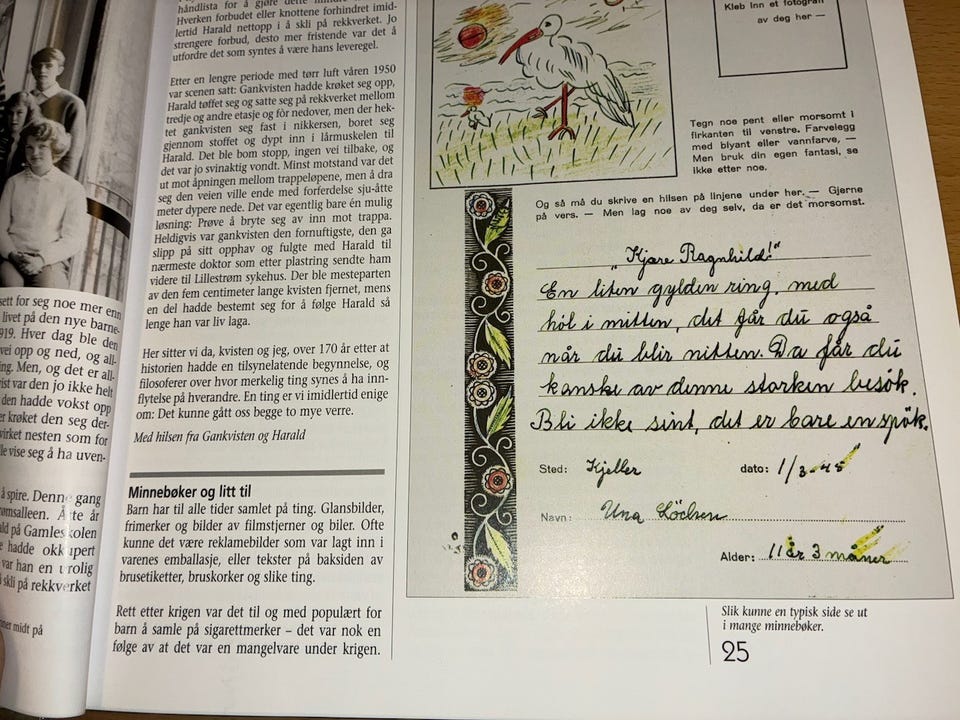 sett for seg noe mer enn
livet på den nye barne-
919. Hver dag ble den
vei opp og ned, og all-
ing. Men, og det er all-
ist var den jo ikke helt
den hadde vokst opp
er krøket den seg der-
virket nesten som for
le vise seg å ha uven-
å spire. Denne gang
ømsalleen. Åtte år
ld på Gamleskolen
e hadde okkupert
var han en urolig
å skli på rekkverket
midt på
håndlista for å gjøre dette
Hverken forbudet eller knottene forhindret imid-
lertid Harald nettopp i å skli på rekkverket. Jo
strengere forbud, desto mer fristende var det å
utfordre det som syntes å være hans leveregel.
Etter en lengre periode med tørr luft våren 1950
var scenen satt: Gankvisten hadde krøket seg opp,
Harald tøffet seg og satte seg på rekkverket mellom
tredje og andre etasje og fòr nedover, men der hek-
tet gankvisten seg fast i nikkersen, boret seg
gjennom stoffet og dypt inn i lårmuskelen til
Harald. Det ble bom stopp, ingen vei tilbake, og
det var jo svinaktig vondt. Minst motstand var det
ut mot åpningen mellom trappeløpene, men å dra
seg den veien ville ende med forferdelse sju-åtte
meter dypere nede. Det var egentlig bare én mulig
løsning: Prøve å bryte seg av inn mot trappa.
Heldigvis var gankvisten den fornuftigste, den ga
slipp på sitt opphav og fulgte med Harald til
nærmeste doktor som etter plastring sendte ham
videre til Lillestrøm sykehus. Der ble mesteparten
av den fem centimeter lange kvisten fjernet, mens
en del hadde bestemt seg for å følge Harald så
lenge han var liv laga.
Her sitter vi da, kvisten og jeg, over 170 år etter at
historien hadde en tilsynelatende begynnelse, og
filosoferer over hvor merkelig ting synes å ha inn-
flytelse på hverandre. En ting er vi imidlertid enige
om: Det kunne gått oss begge to mye verre.
Med hilsen fra Gankvisten og Harald
Minnebøker og litt til
Barn har til alle tider samlet på ting. Glansbilder,
frimerker og bilder av filmstjerner og biler. Ofte
kunne det være reklamebilder som var lagt inn i
varenes emballasje, eller tekster på baksiden av
brusetiketter, bruskorker og slike ting.
Rett etter krigen var det til og med populært for
barn å samle på sigarettmerker – det var nok en
følge av at det var en mangelvare under krigen.
Kleb inn et fotografi
av deg her —
Tegn noe pent eller morsomt i
firkanten til venstre. Farvelegg
med blyant eller vannfarve, —
Men bruk din egen fantasi, se
ikke etter noe.
Og så må du skrive en hilsen på linjene under her. — Gjerne
på vers. — Men lag noe av deg selv, da er det morsomst.
„Kjære Ragnhild!"
En liten gylden ring, med
hól i mitten, det får du også
når du blir nitten. Da får du
kanske av denne storken besók.
Bli ikke sint, det er bare en spók.
Sted: Kjeller dato: 1/3-48
Navn: Una
Alder: 11 år 3 måner
Slik kunne en typisk side se ut
i mange minnebøker.
25